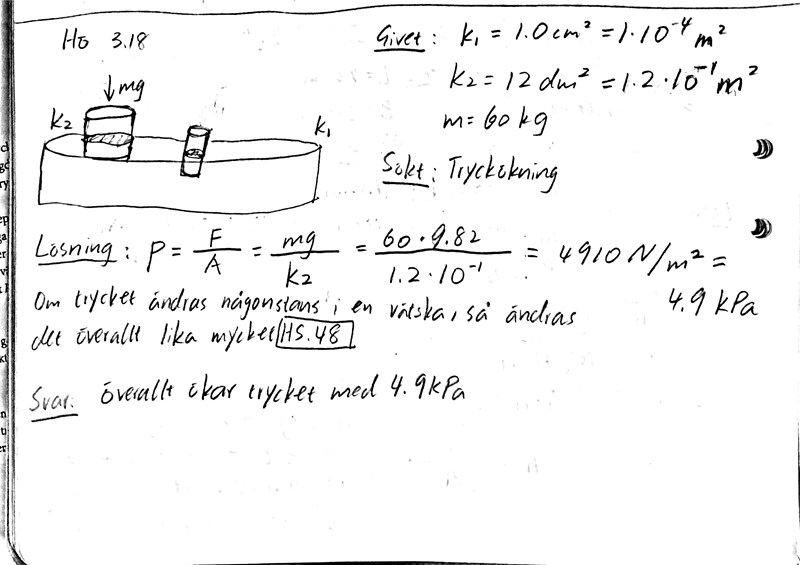 Hö 3.18
Givet: k₁ = 1.0 cm² = 1·10⁻⁴ m²
k₂ = 12 dm² = 1.2·10⁻¹ m²
m = 60 kg
↓mg
k₂
k₁
Sökt: Tryckökning
Lösning: P = F/A = mg/k₂ = 60·9.82/1.2·10⁻¹ = 4910 N/m² =
4.9 kPa
Om trycket ändras någonstans i en vätska, så ändras
det överallt lika mycket HS.48
Svar: överallt ökar trycket med 4.9 kPa